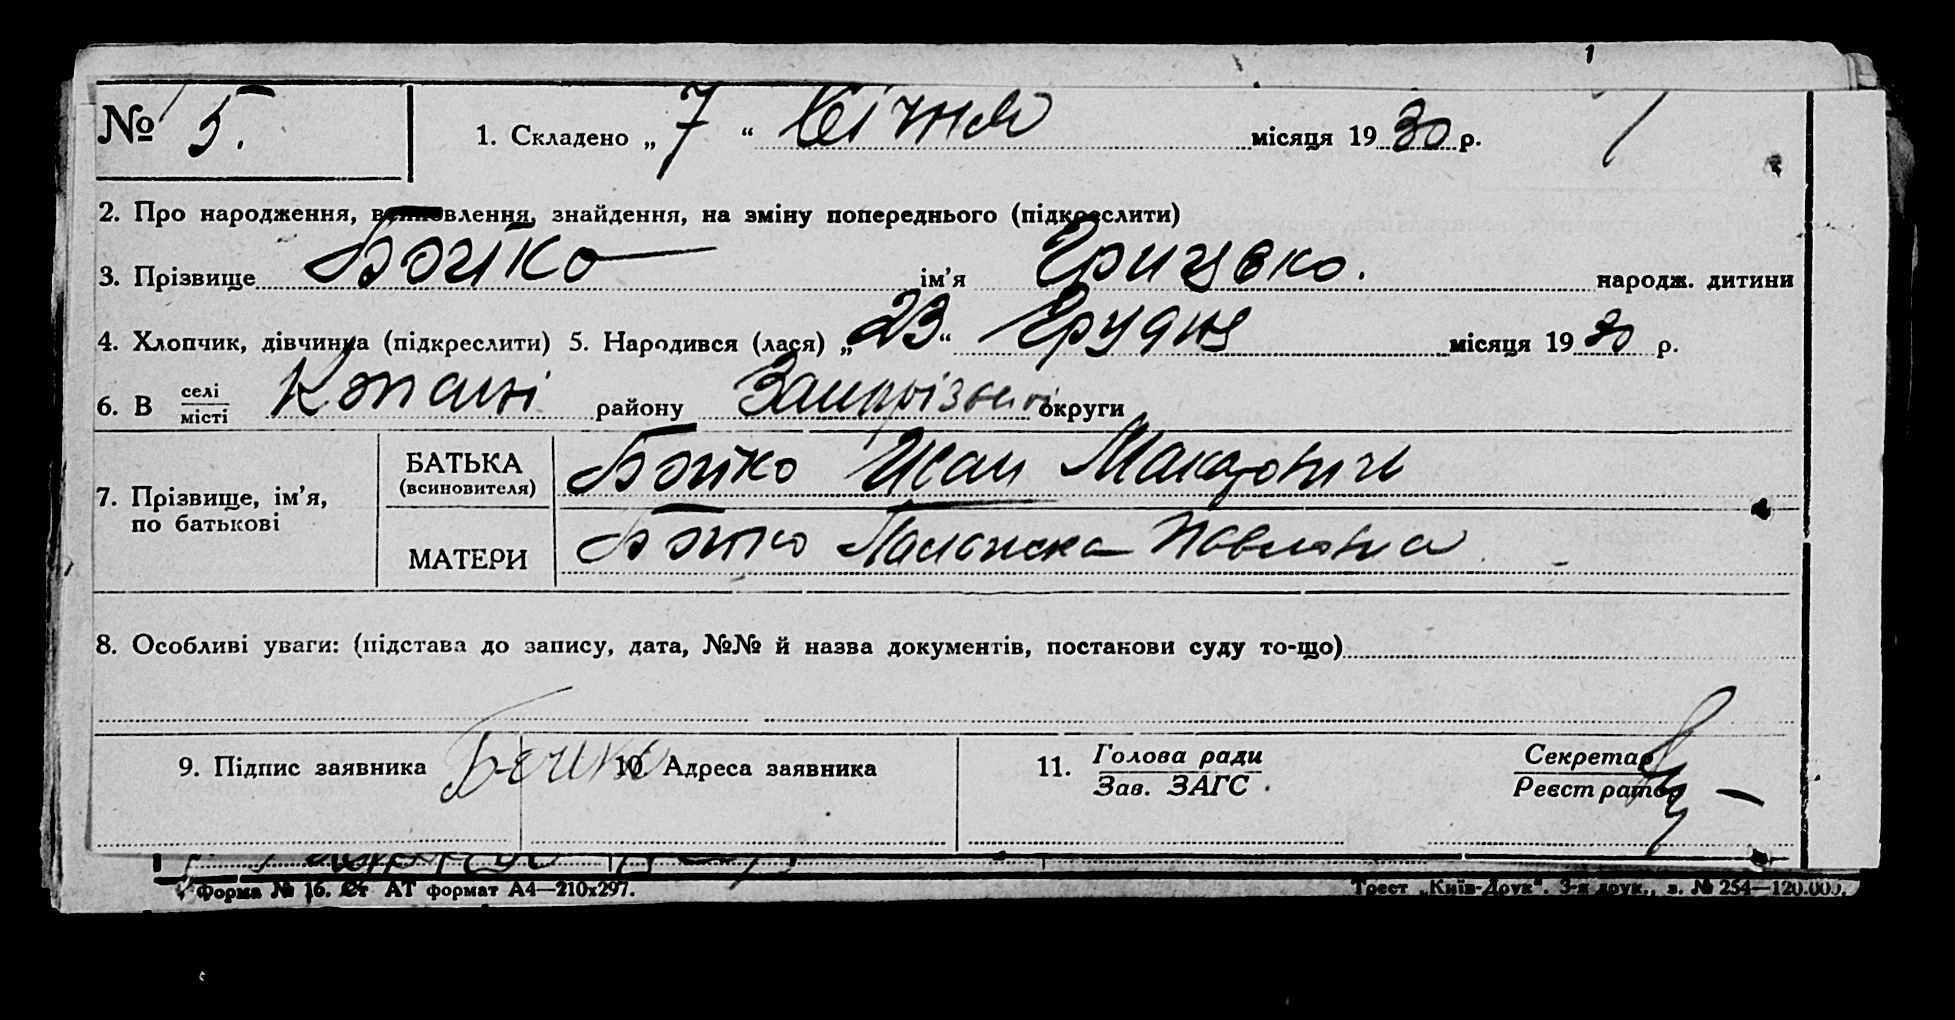 1
№ 5. 1. Складено „ 7 “ Січня місяця 19 30 р.
2. Про народження, всиновлення, знайдення, на зміну попереднього (підкреслити)
3. Прізвище Бойко ім’я Грицько. народж. дитини
4. Хлопчик, дівчинка (підкреслити) 5. Народився (лася) „ 23 “ Грудня місяця 19 30 р.
6. В селі/місті Копані району округи
7. Прізвище, ім’я, по батькові
БАТЬКА (всиновителя) Бойко Иван
МАТЕРИ Бойко Павловна
8. Особливі уваги: (підстава до запису, дата, №№ й назва документів, постанови суду то-що)
9. Підпис заявника Бойко 10. Адреса заявника 11. Голова ради Секретар
Зав. ЗАГС. Реєстратор
Форма № 16. Ст АТ формат А4—210х297. Трест „Київ-Друк“. 3-я друк., з. № 254—120.000.